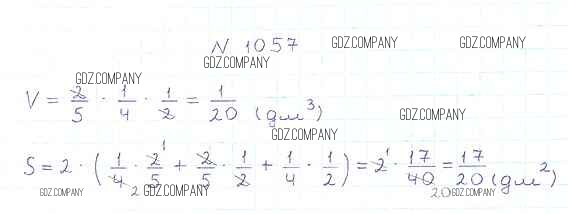 N 1057 GDZ.COMPANY GDZ.COMPANY
GDZ.COMPANY
GDZ.COMPANY
V = 2/5 · 1/4 · 1/2 = 1/20 (дм³)
GDZ.COMPANY
GDZ.COMPANY
S = 2 · (1/4 · 2/5 + 2/5 · 1/2 + 1/4 · 1/2) = 2 · 17/40 = 17/20 (дм²)
GDZ.COMPANY GDZ.COMPANY GDZ.COMPANY